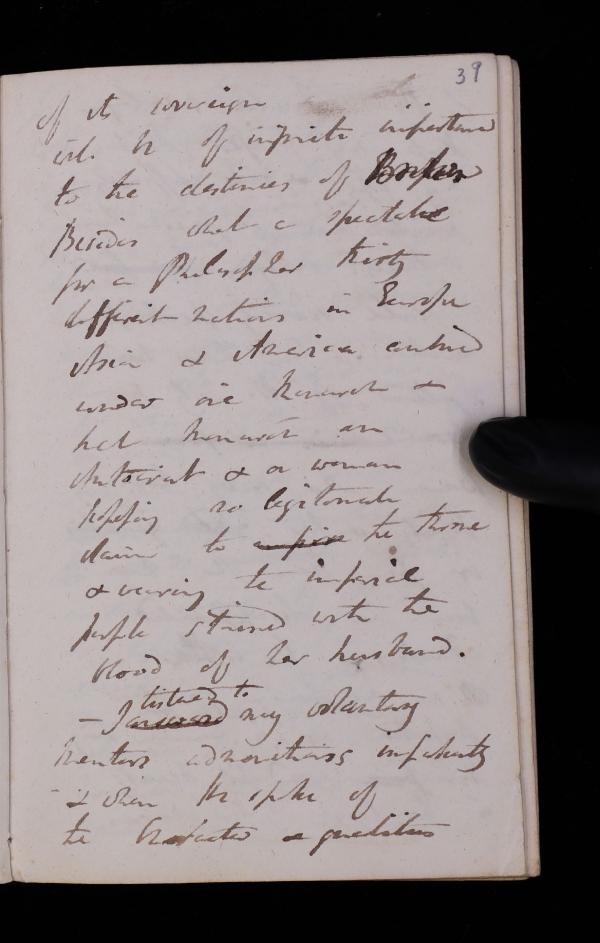 39
of its sovereign
will be of infinite importance
to the destinies of
Besides what a spectacle
for a Philosopher thirty
different nations in Europe
Asia & America
under one Monarch &
that Monarch an
Autocrat & a woman
no legitimate
claim to empire the throne
& wearing the imperial
purple stained with the
blood of her husband.
listened to
- I answered my voluntary
Mentors admonitions impatiently
- & when He spoke of
the Character & qualities